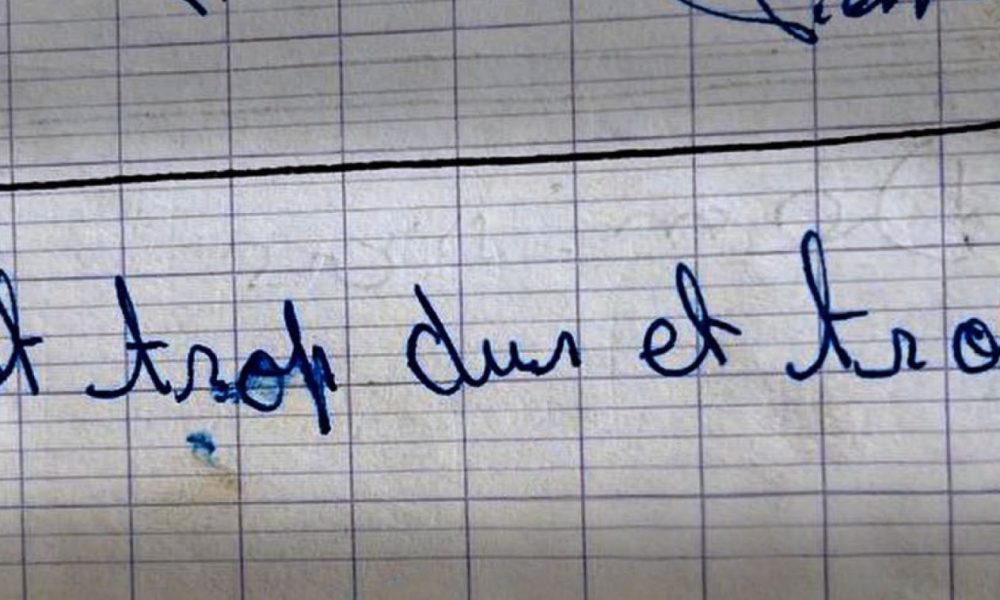 t trop dur et tro